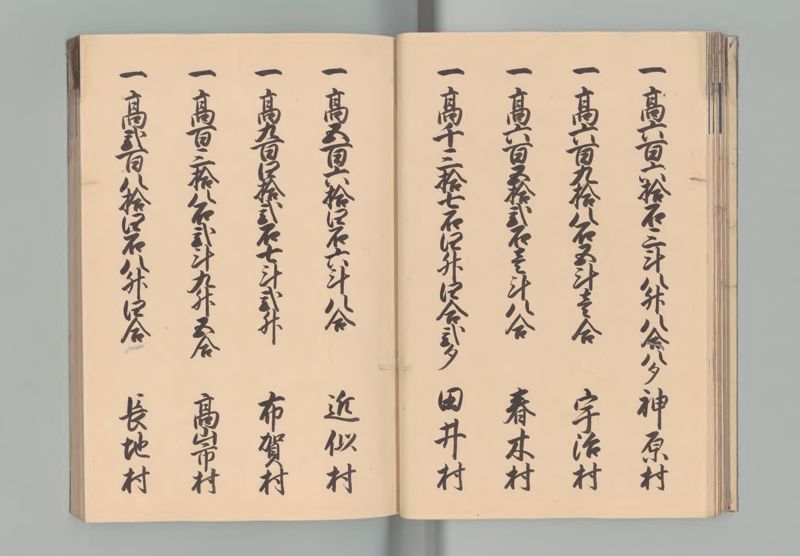 一高六百六拾石三斗八升八合八夕　神原村
一高六百九拾八石五斗壱合　宇治村
一高六百五拾弐石壱斗八合　春木村
一高千三拾七石四升四合弐夕　田井村
一高五百六拾四石六斗八合　近似村
一高九百四拾弐石七斗弐升　布賀村
一高百三拾八石弐斗九升五合　高山市村
一高弐百八拾四石八升四合　長地村